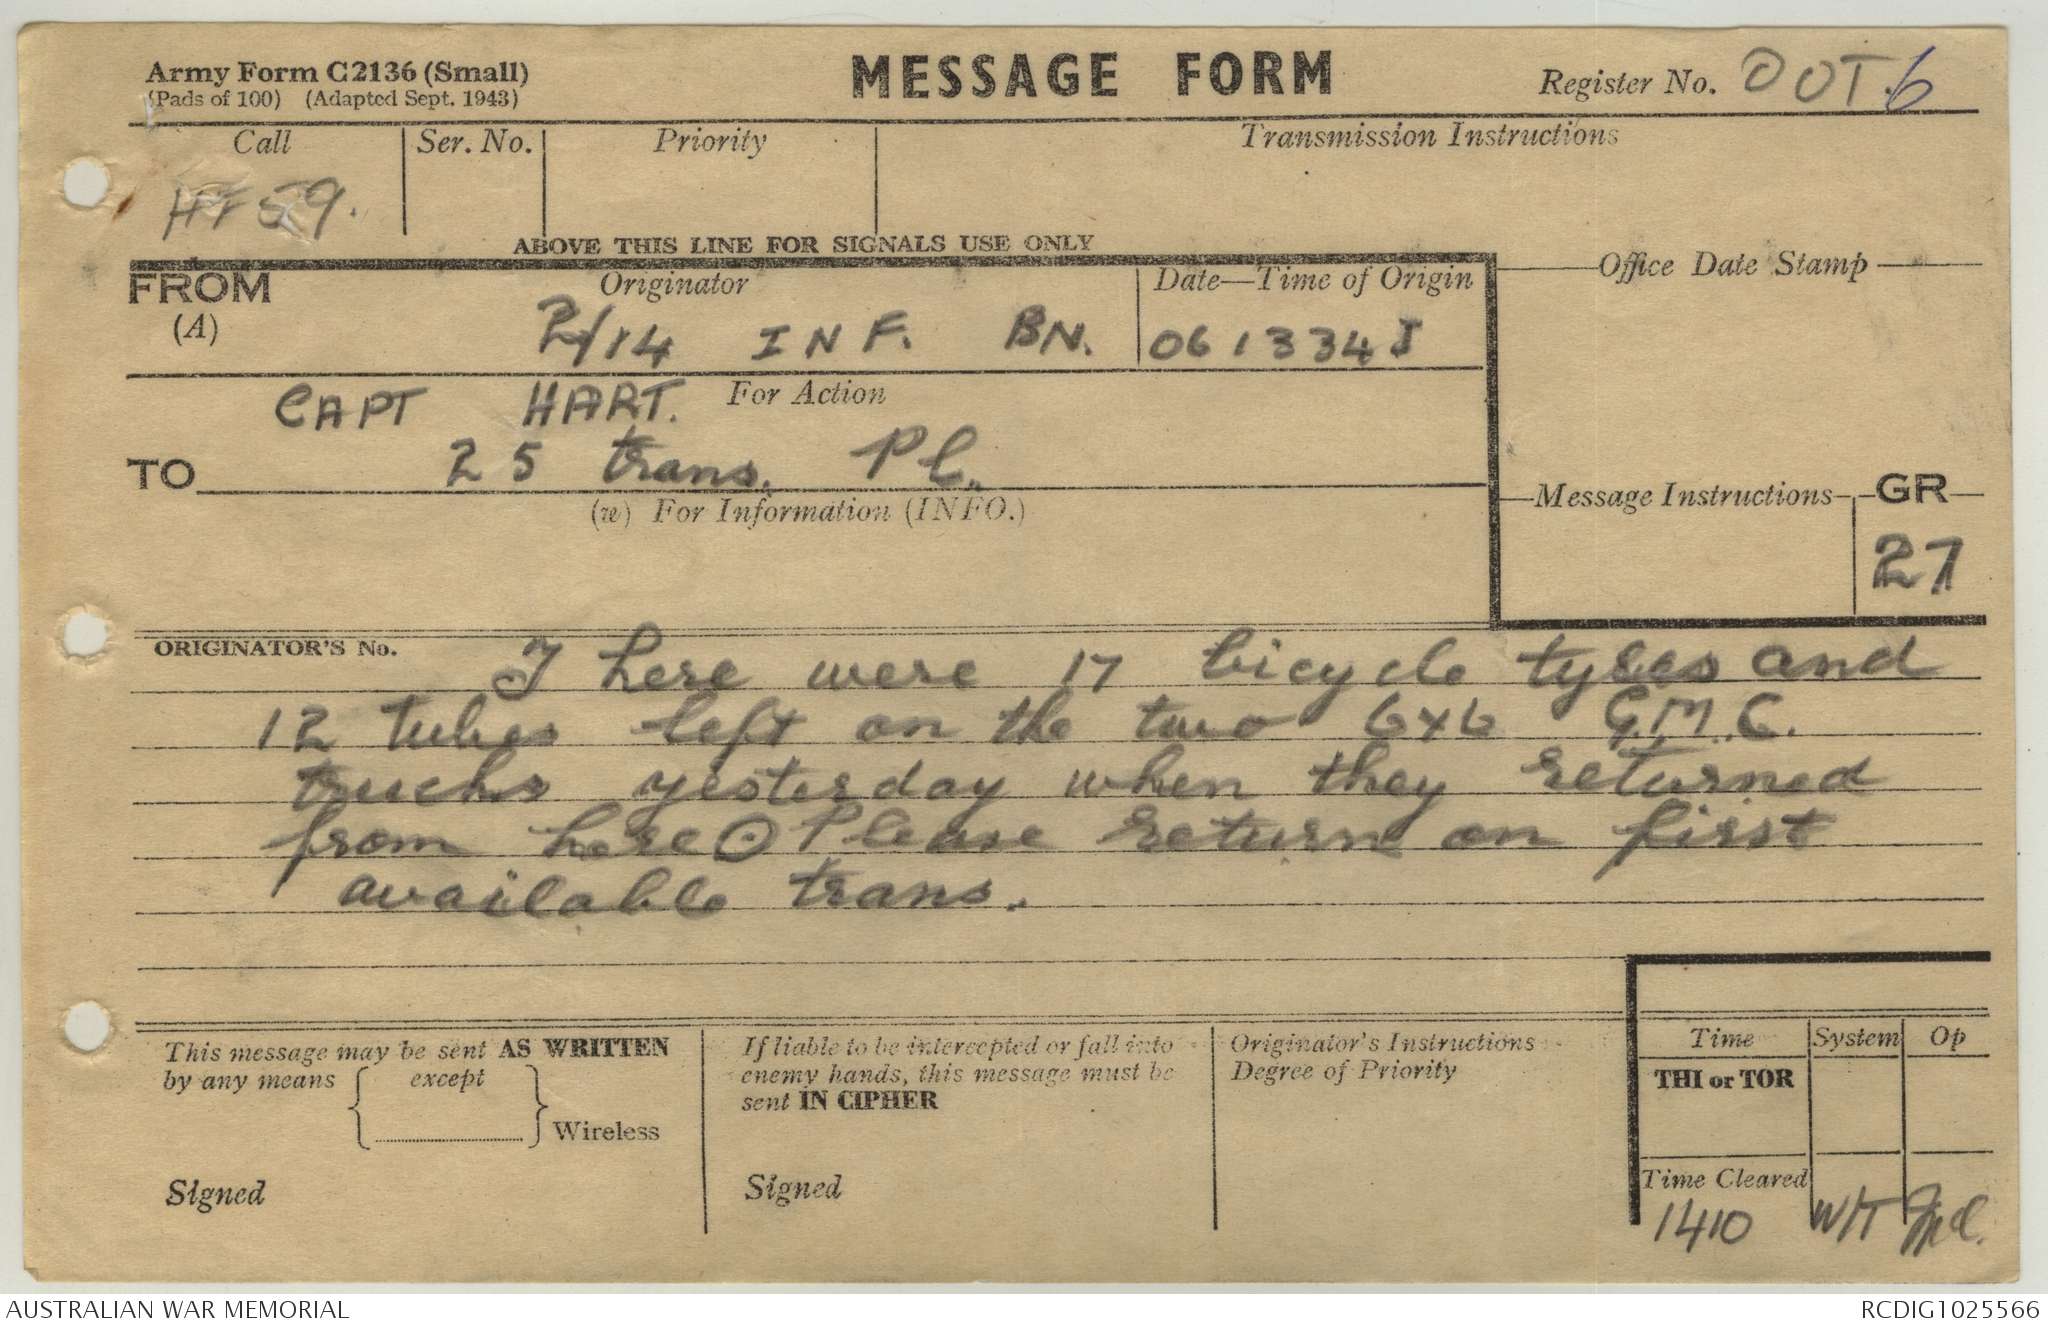 Army Form C2136 (Small)
(Pads of 100) (Adapted Sept. 1943)
MESSAGE FORM
Register No. OUT.6
Call
Ser. No.
Priority
Transmission Instructions
HF59.
ABOVE THIS LINE FOR SIGNALS USE ONLY
FROM
(A)
Originator
2/14 INF. BN.
Date—Time of Origin
061334J
Office Date Stamp
CAPT HART. For Action
TO 25 trans. Pl.
(w) For Information (INFO.)
Message Instructions
GR
27
ORIGINATOR'S No.
There were 17 bicycle tyres and
12 tubes left on the two 6x6 G.M.C.
trucks yesterday when they returned
from here ⊙ Please return on first
available trans.
This message may be sent AS WRITTEN
by any means { except
} Wireless
Signed
If liable to be intercepted or fall into
enemy hands, this message must be
sent IN CIPHER
Signed
Originator's Instructions
Degree of Priority
Time System Op
THI or TOR
Time Cleared
1410 W/T
AUSTRALIAN WAR MEMORIAL
RCDIG1025566